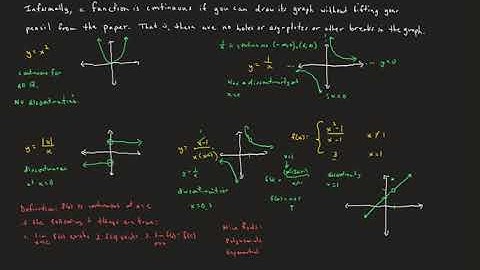 Informally, a function is continuous if you can draw its graph without lifting your
pencil from the paper. That is, there are no holes or asymptotes or other breaks in the graph.
y = x²
continuous for
all ℝ.
No discontinuities
1/x is continuous (-∞,0), (0,∞)
y = 1/x
Has a discontinuity at
x=0
y=0
x=0
y = |x|/x
discontinuous
at x=0
discontinuities
f(x) =
x²-1
x-1
x ≠ 1
3
x=1
discontinuity
x=1
Definition: f(x) is continuous at x=c
if the following 3 things are true:
1. lim f(x) exists 2. f(c) exists 3. lim f(x) = f(c)
Nice Funcs:
Polynomials
Exponential